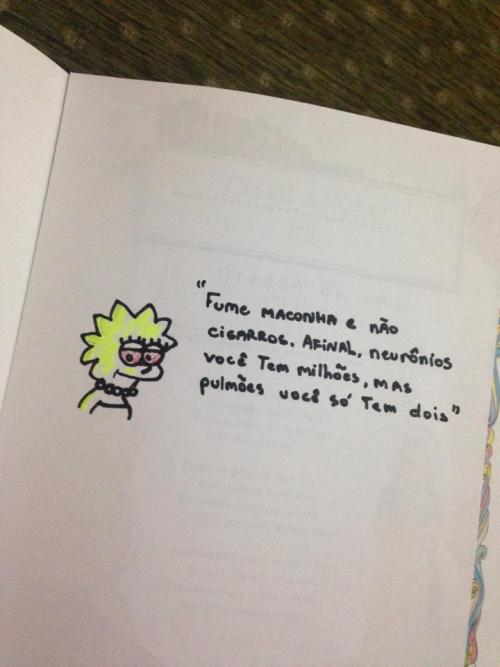 "Fume maconha e não
cigarros. Afinal, neurônios
você tem milhões, mas
pulmões você só tem dois"